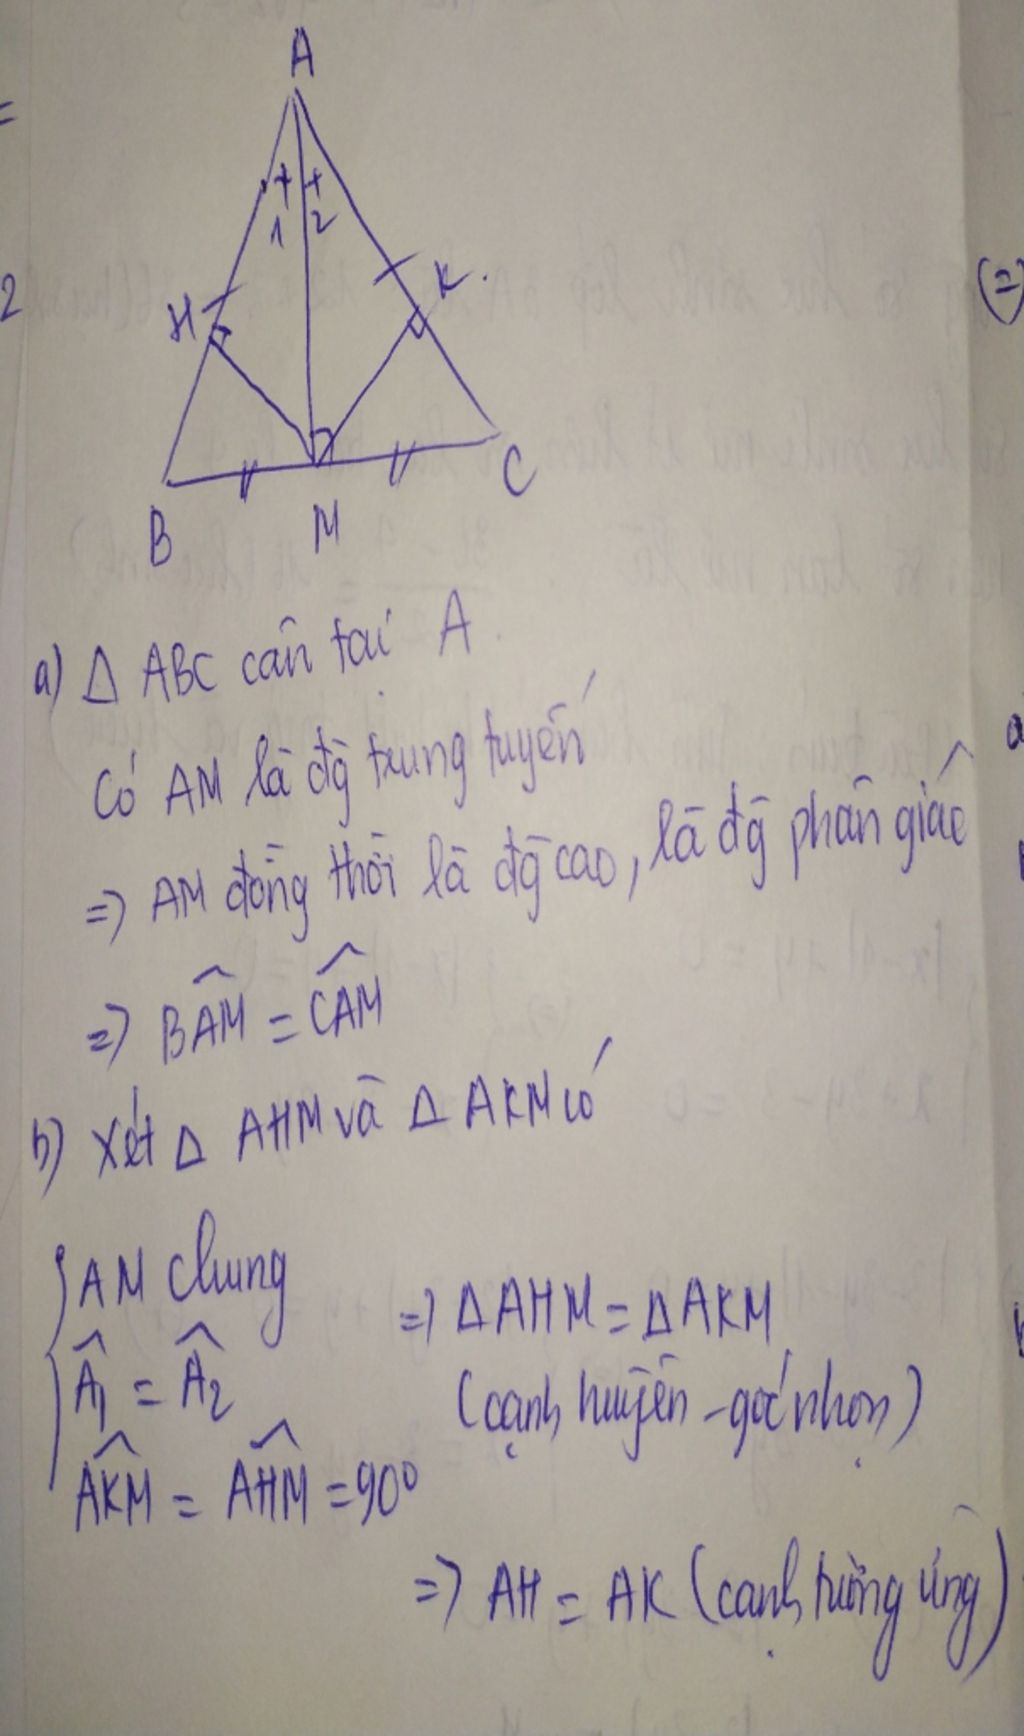 =
A
1 2
2
H
K
(=)
B
M
C
a) Δ ABC cân tại A
Có AM là đg trung tuyến
=> AM đồng thời là đg cao, là đg phân giác
=> BAM̂ = CAM̂
b) Xét Δ AHM và Δ AKM có
{ AM chung
Â1 = Â2
AKM̂ = AHM̂ = 90°
=> Δ AHM = Δ AKM
(cạnh huyền - góc nhọn)
=> AH = AK (cạnh tương ứng)